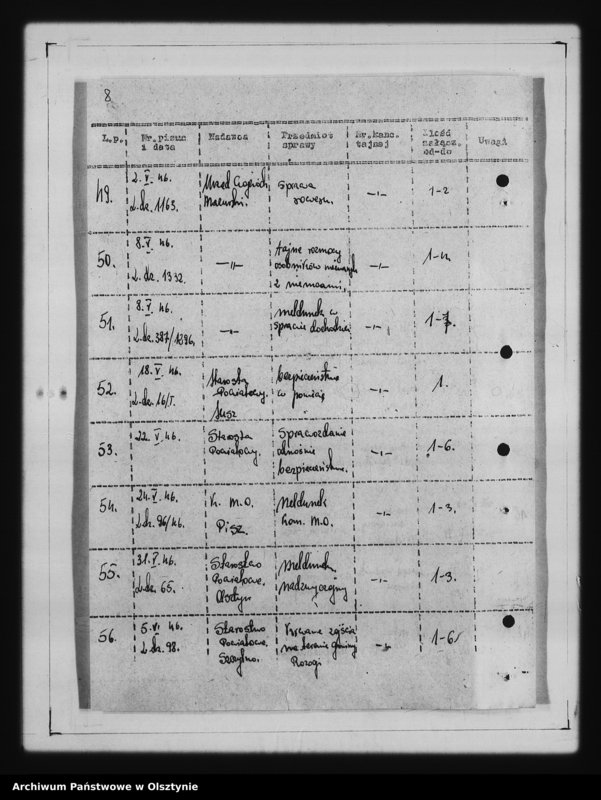 8
L.p. Nr.pisma i data Nadawca Przedmiot sprawy Nr.kanc. tajnej Ilość załącz. od-do Uwagi
49. 2.V.46. L.dz. 1163. Urząd Mazurski. Sprawa -„- 1-2
50. 8.V.46. L.dz. 1332. -„- tajne rozmowy osobników z niemcami. -„- 1-4
51. 8.V.46. L.dz. 387/1396. -„- meldunek w sprawie -„- 1-7.
52. 18.V.46. L.dz. 16/T. Starosta Powiatowy. Susz bezpieczeństwo w powiecie -„- 1.
53. 22.V.46. Starosta Powiatowy. Sprawozdanie odnośnie bezpieczeństwa. -„- 1-6.
54. 24.V.46. L.dz. 96/46. K. M.O. Pisz. Meldunek Kom. M.O. -„- 1-3.
55. 31.V.46. L.dz. 65. Starostwo Powiatowe. Olsztyn Meldunek nadzwyczajny -„- 1-3.
56. 5.VI.46. L.dz. 98. Starostwo Powiatowe. Szczytno. Krwawe zajścia na terenie gminy Rozogi -„- 1-6
Archiwum Państwowe w Olsztynie